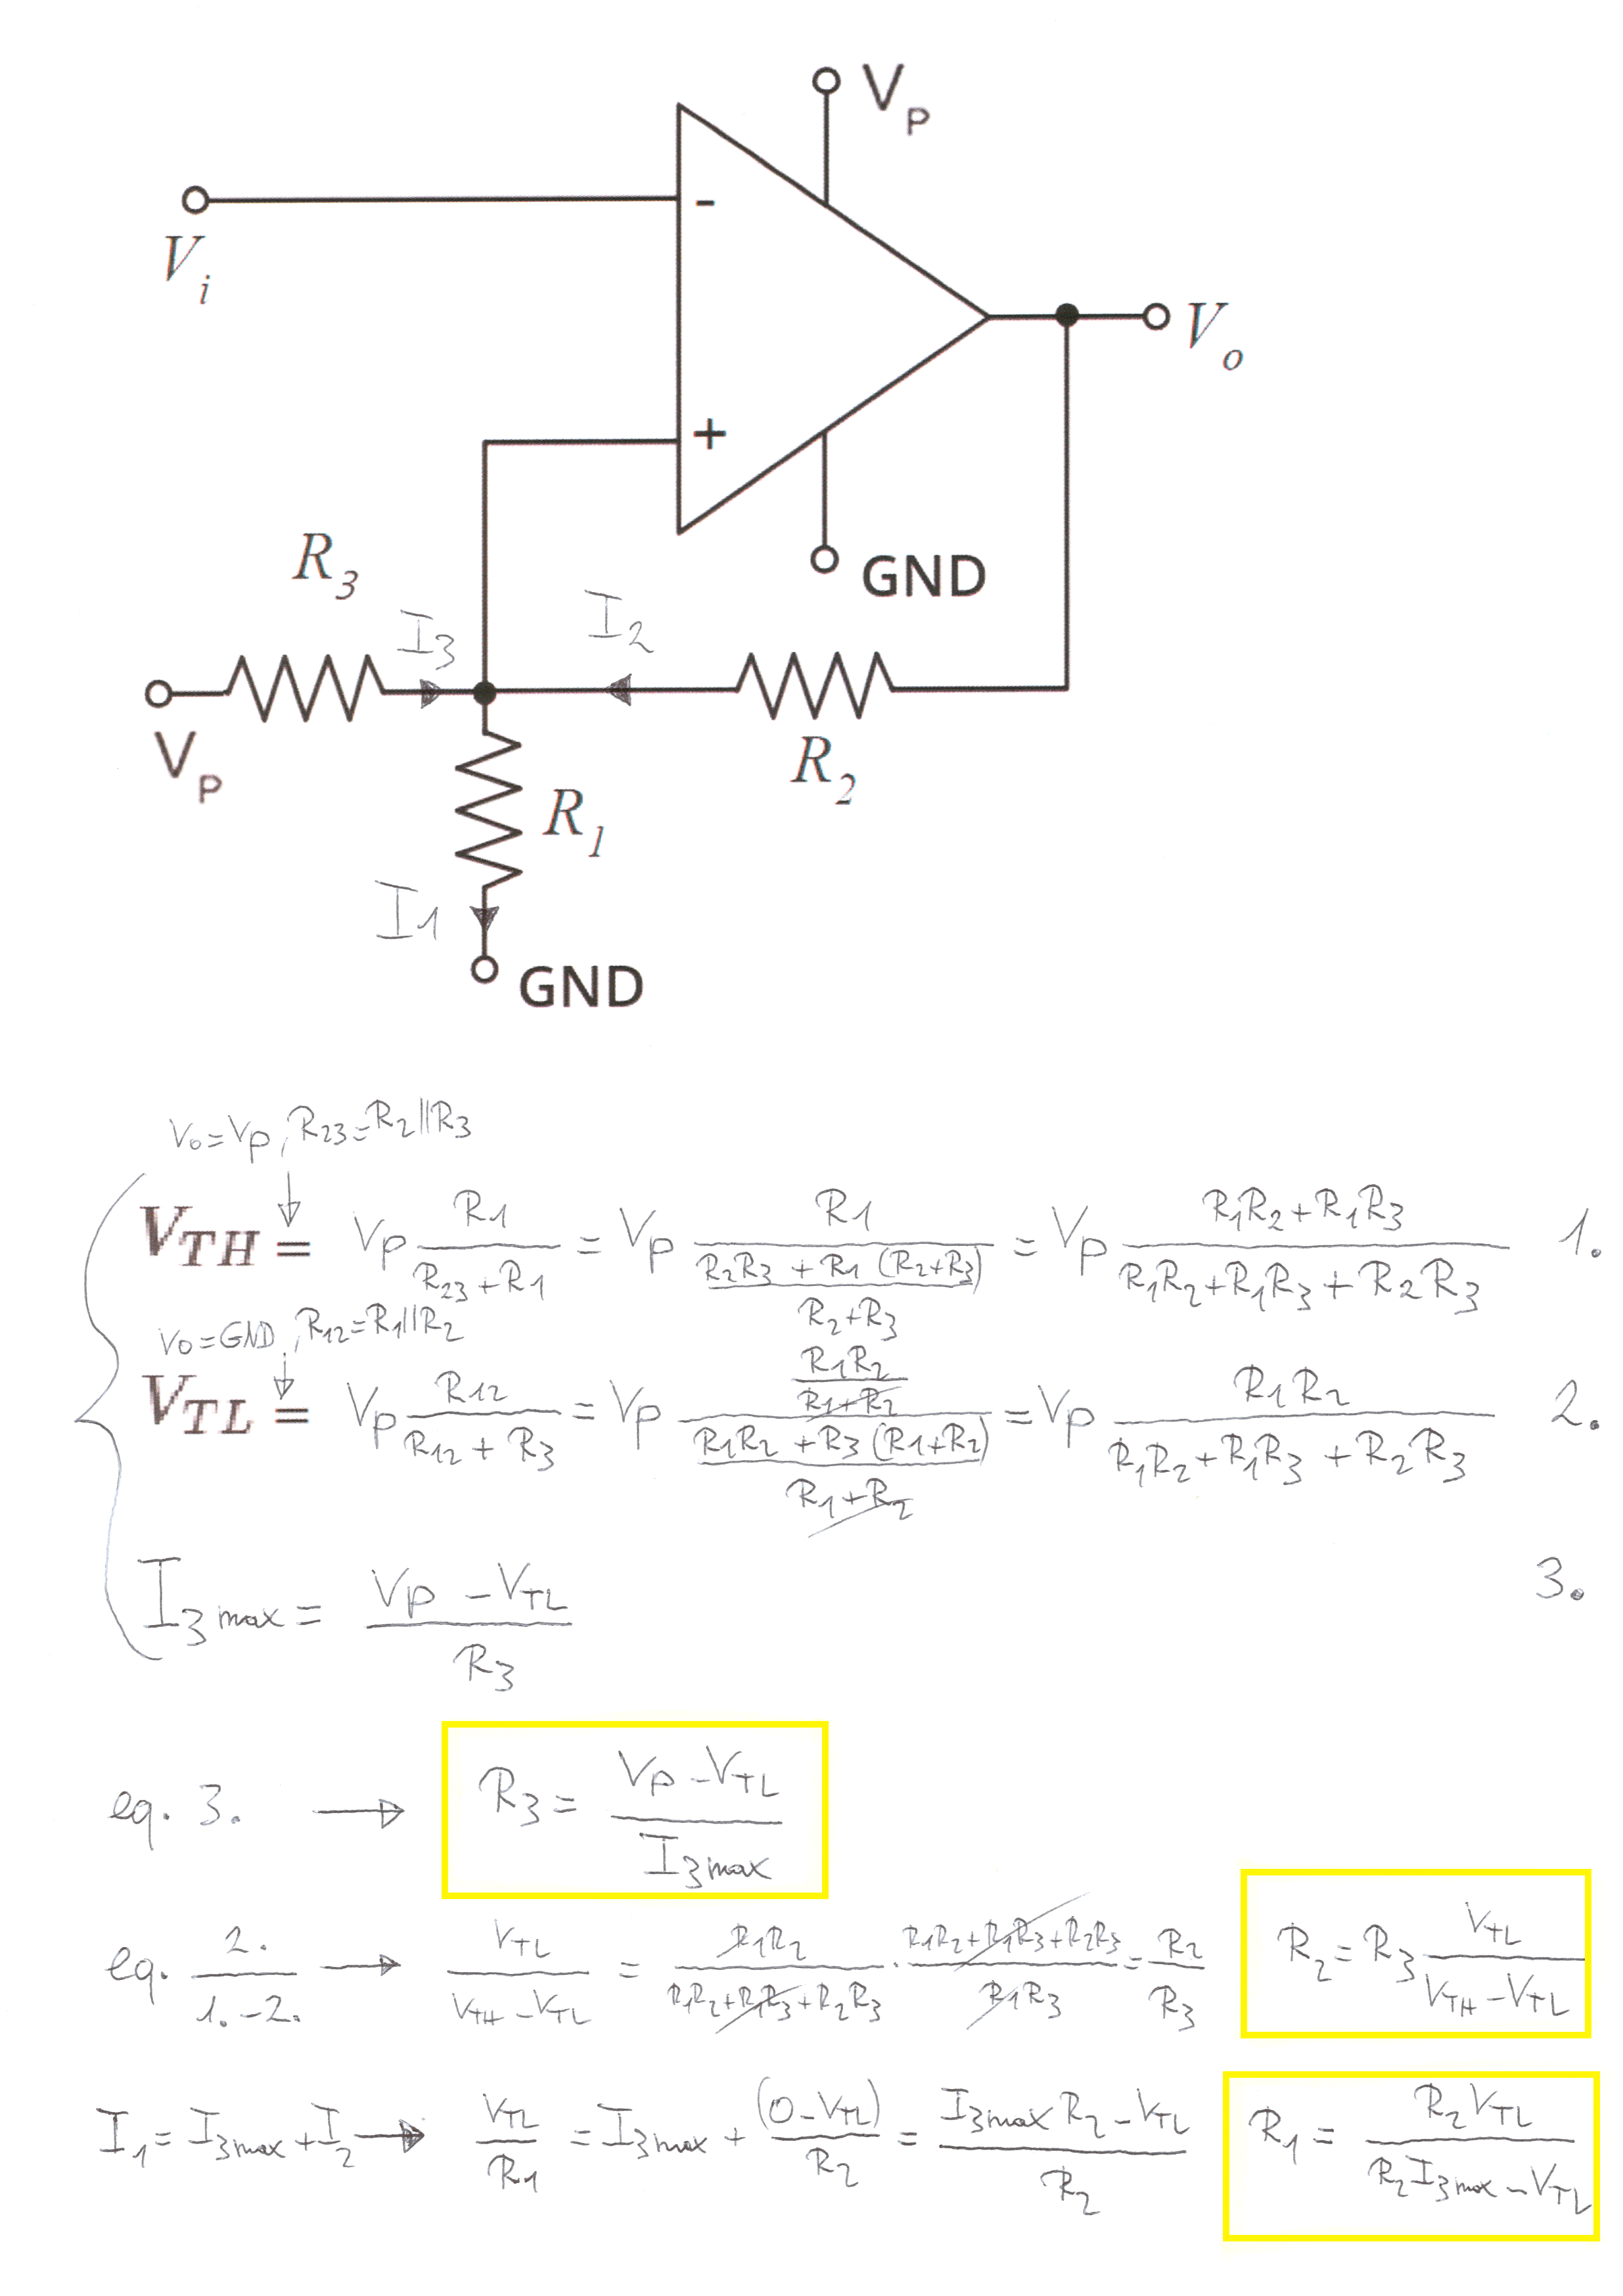 V_P
V_i
-
V_o
+
GND
R_3
I_3
I_2
V_P
R_2
R_1
I_1
GND
V_o=V_P, R_23=R_2||R_3
V_TH = V_P R_1/(R_23+R_1) = V_P R_1/((R_2R_3+R_1(R_2+R_3))/(R_2+R_3)) = V_P (R_1R_2+R_1R_3)/(R_1R_2+R_1R_3+R_2R_3) 1.
V_o=GND, R_12=R_1||R_2
V_TL = V_P R_12/(R_12+R_3) = V_P (R_1R_2/(R_1+R_2))/((R_1R_2+R_3(R_1+R_2))/(R_1+R_2)) = V_P R_1R_2/(R_1R_2+R_1R_3+R_2R_3) 2.
I_3max = (V_P-V_TL)/R_3 3.
eq. 3. → R_3 = (V_P-V_TL)/I_3max
eq. 2./(1.-2.) → V_TL/(V_TH-V_TL) = R_1R_2/(R_1R_2+R_1R_3+R_2R_3) · (R_1R_2+R_1R_3+R_2R_3)/(R_1R_3) = R_2/R_3 R_2 = R_3 V_TL/(V_TH-V_TL)
I_1 = I_3max+I_2 → V_TL/R_1 = I_3max + (0-V_TL)/R_2 = (I_3max R_2-V_TL)/R_2 R_1 = R_2V_TL/(R_2I_3max-V_TL)